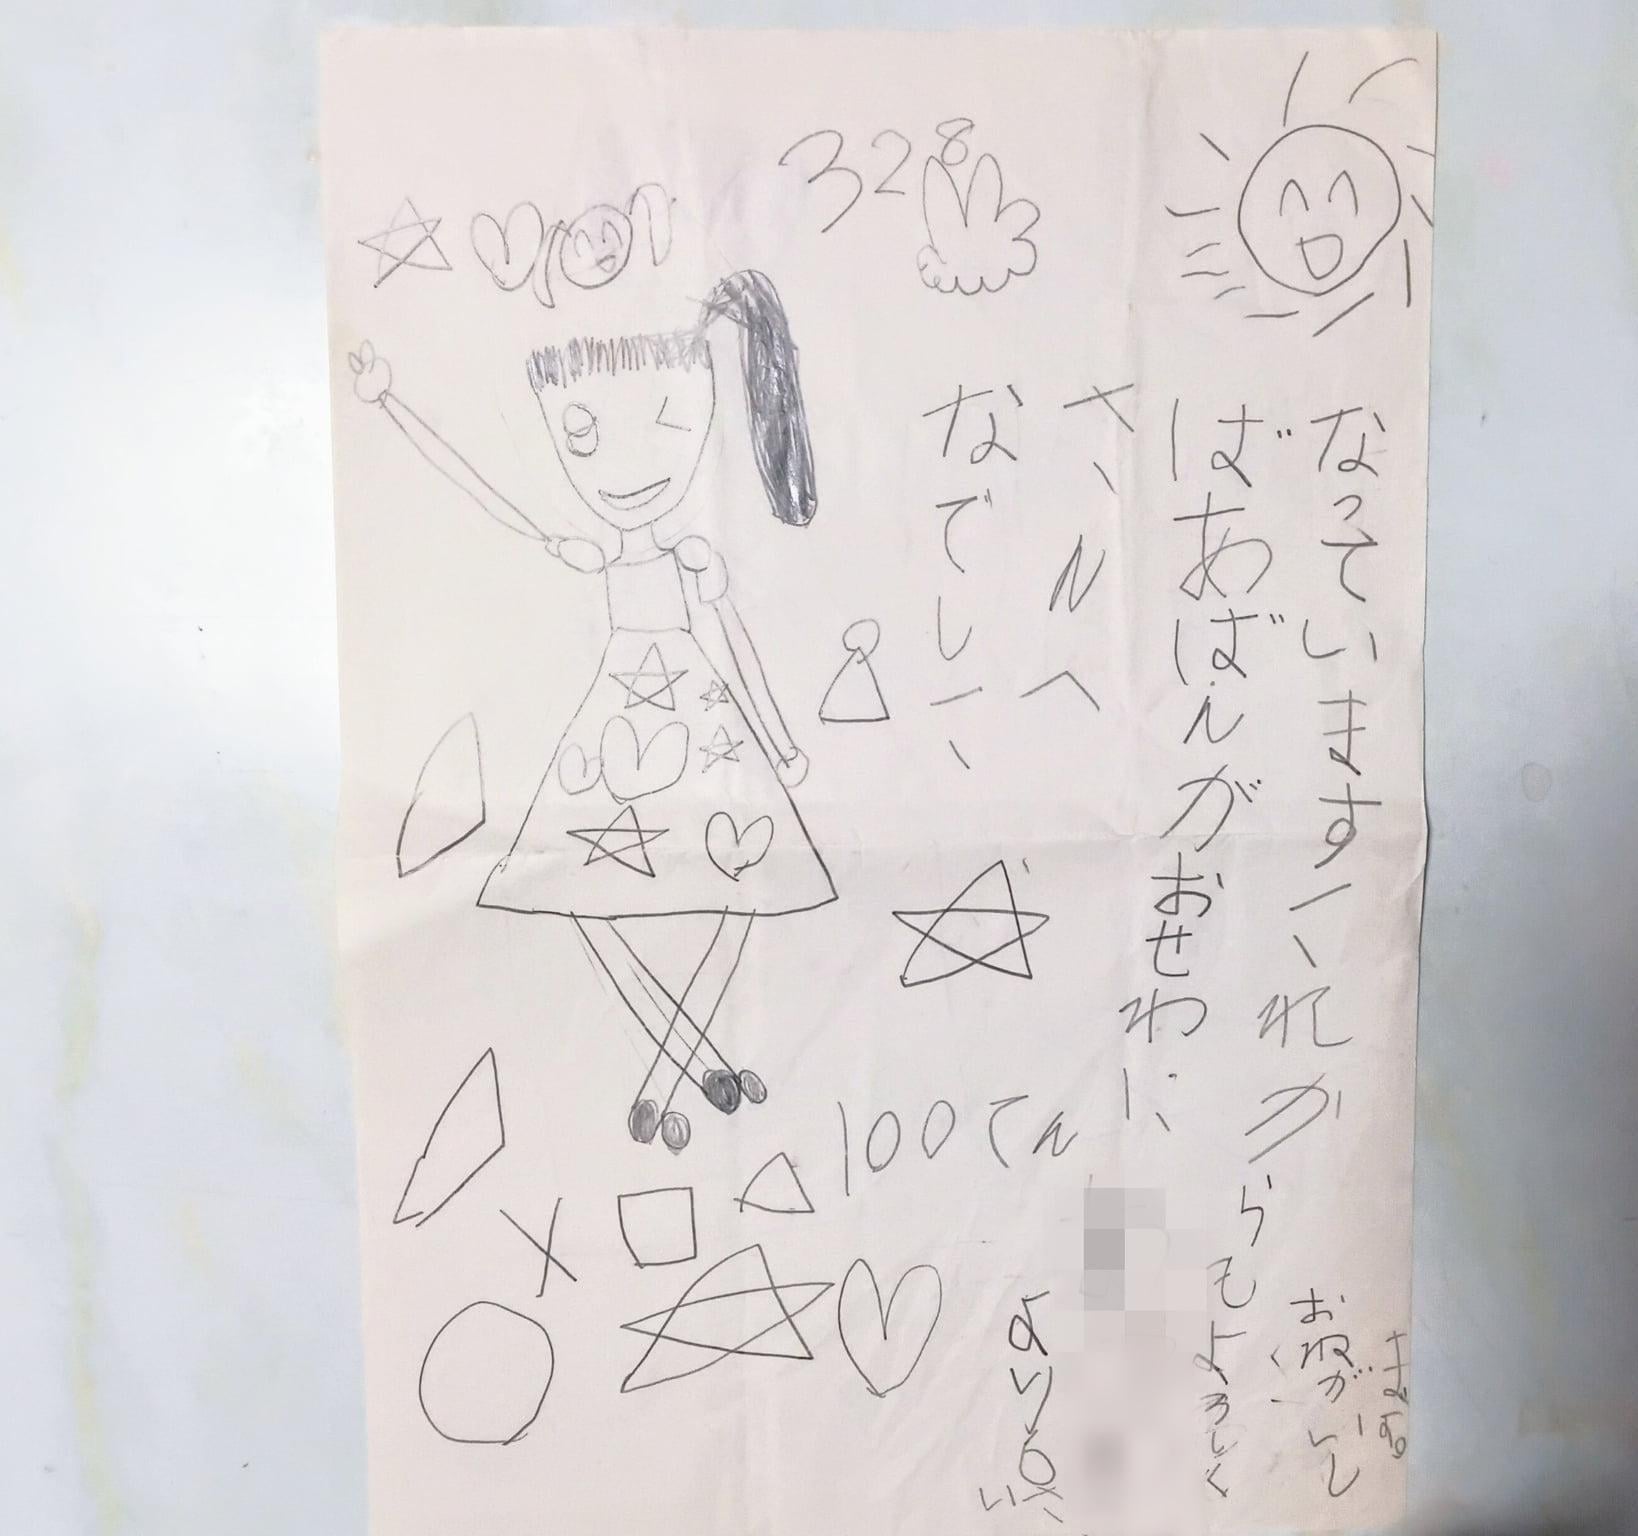 328
なでしこ
さんへ
ばあばんがおせわに
なっていますこれからもよろしく
おねがいし
ます
100てん
より